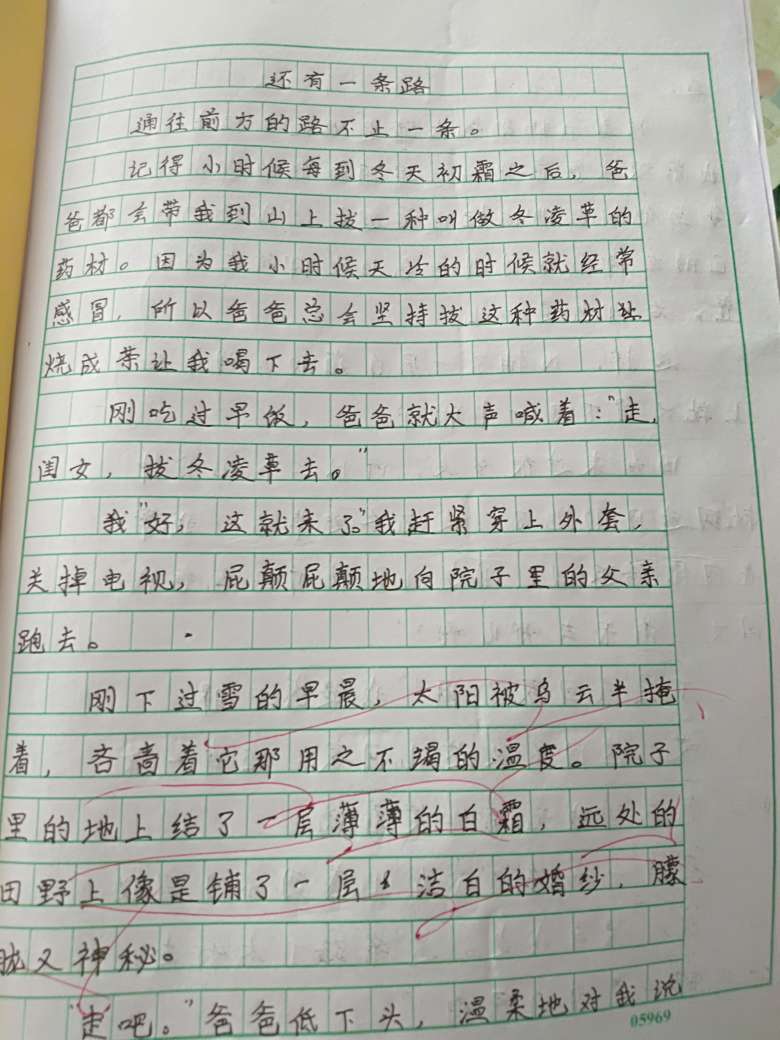 还有一条路
通往前方的路不止一条。
记得小时候每到冬天初霜之后,爸
爸都会带我到山上拔一种叫做冬凌草的
药材。因为我小时候天冷的时候就经常
感冒,所以爸爸总会坚持拔这种药材
烧成茶让我喝下去。
刚吃过早饭,爸爸就大声喊着:"走,
闺女,拔冬凌草去。"
我"好,这就来了。"我赶紧穿上外套,
关掉电视,屁颠屁颠地向院子里的父亲
跑去。
刚下过雪的早晨,太阳被乌云半掩
着,吝啬着它那用之不竭的温度。院子
里的地上结了一层薄薄的白霜,远处的
田野上像是铺了一层洁白的婚纱,朦
胧又神秘。
"走吧。"爸爸低下头,温柔地对我说
05969